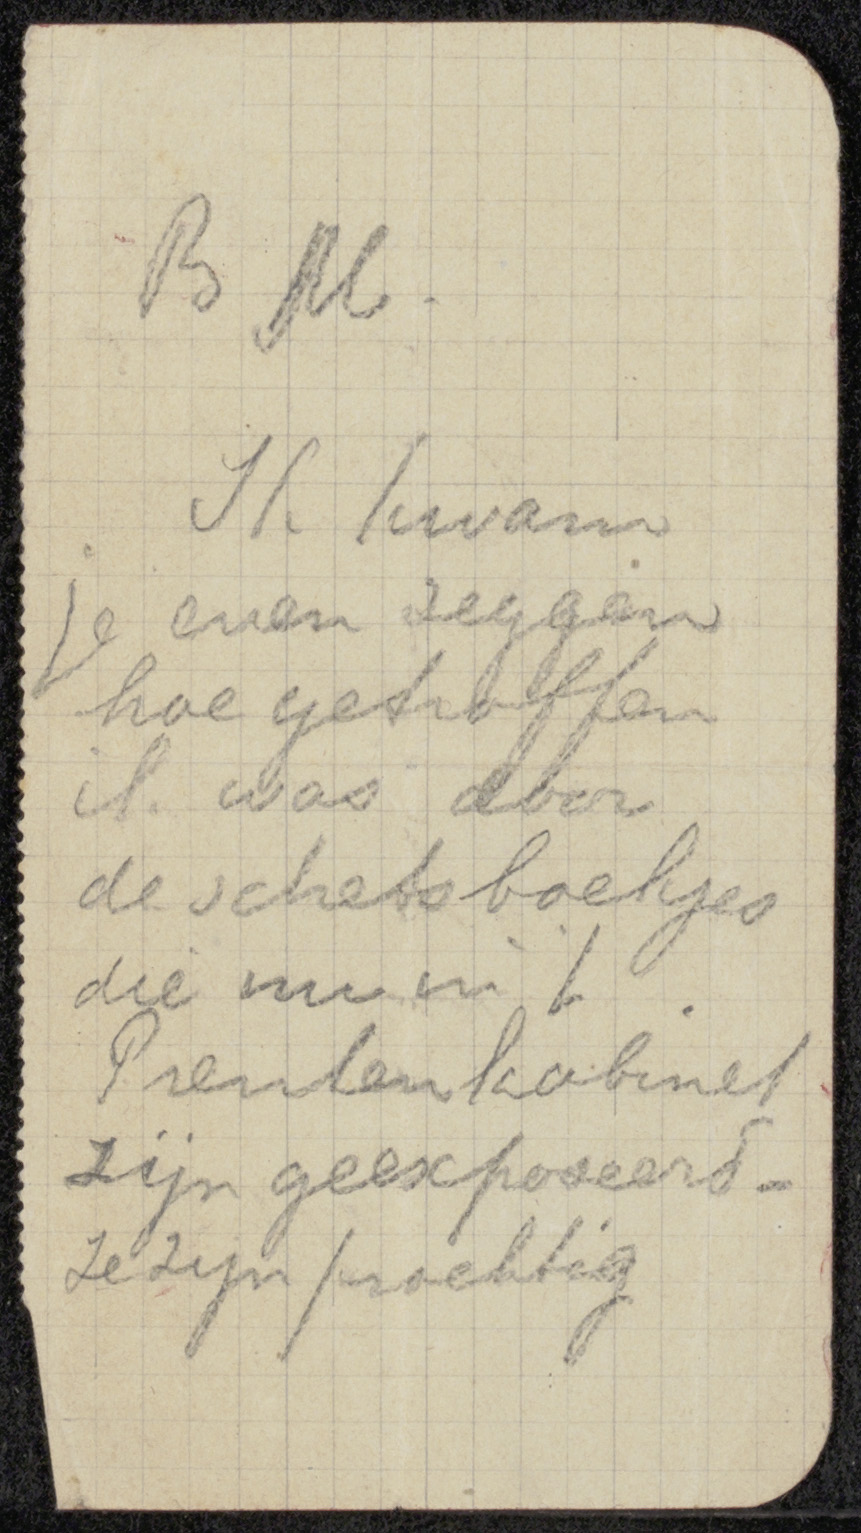 B M.
Ik kwam
je even zeggen
hoe getroffen
ik was door
de schetsboekjes
die nu in 't
Prentenkabinet
zijn geexposeerd -
ze zijn prachtig